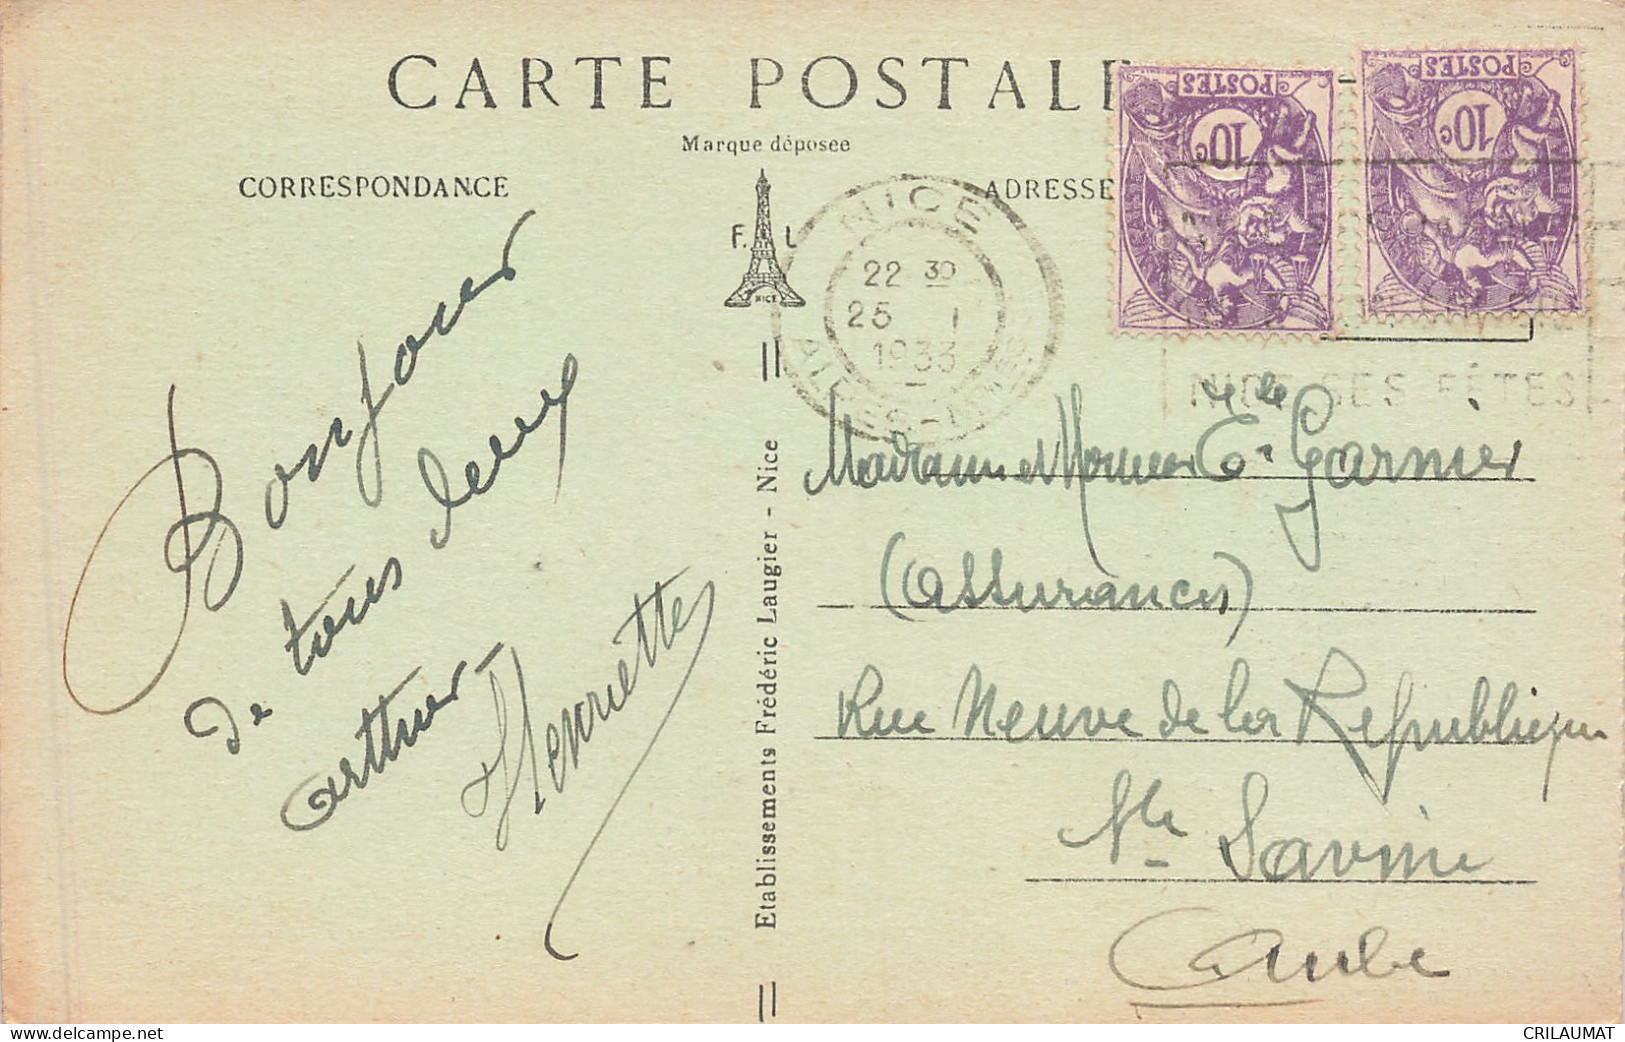 CARTE POSTALE
Marque déposée
CORRESPONDANCE
ADRESSE
F. L
NICE
POSTES
10c
POSTES
10c
NICE
22 30
25 I
1933
ALPES-MMES
NICE SES FÊTES
Bonjour
de tous deux
Arthur-
Henriette
Etablissements Frédéric Laugier - Nice
Madame et Monsieur E. de Garnier
(Assurances)
Rue Neuve de la République
Ste Savine
Aube
www.delcampe.net
CRILAUMAT